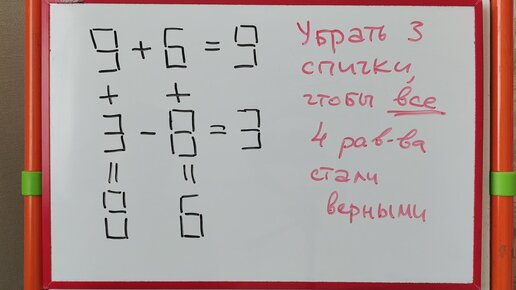 9 + 6 = 9
+ +
3 - 8 = 3
= =
8 6
Убрать 3
спички,
чтобы все
4 рав-ва
стали
верными